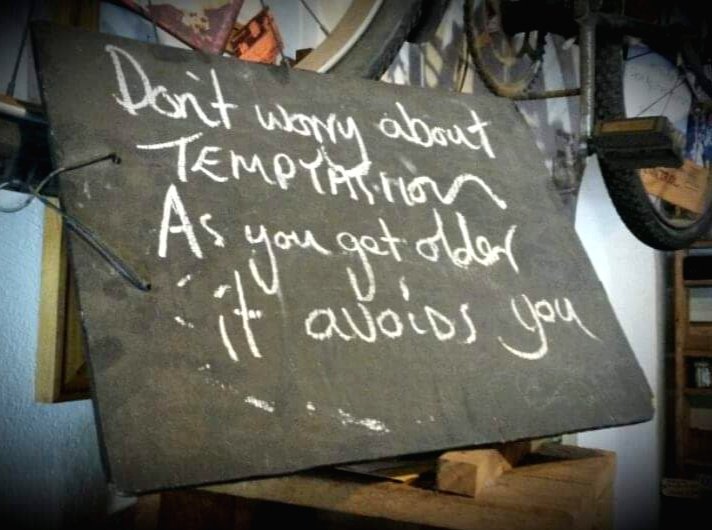 Don't worry about
TEMPTATION
As you get older
it avoids you